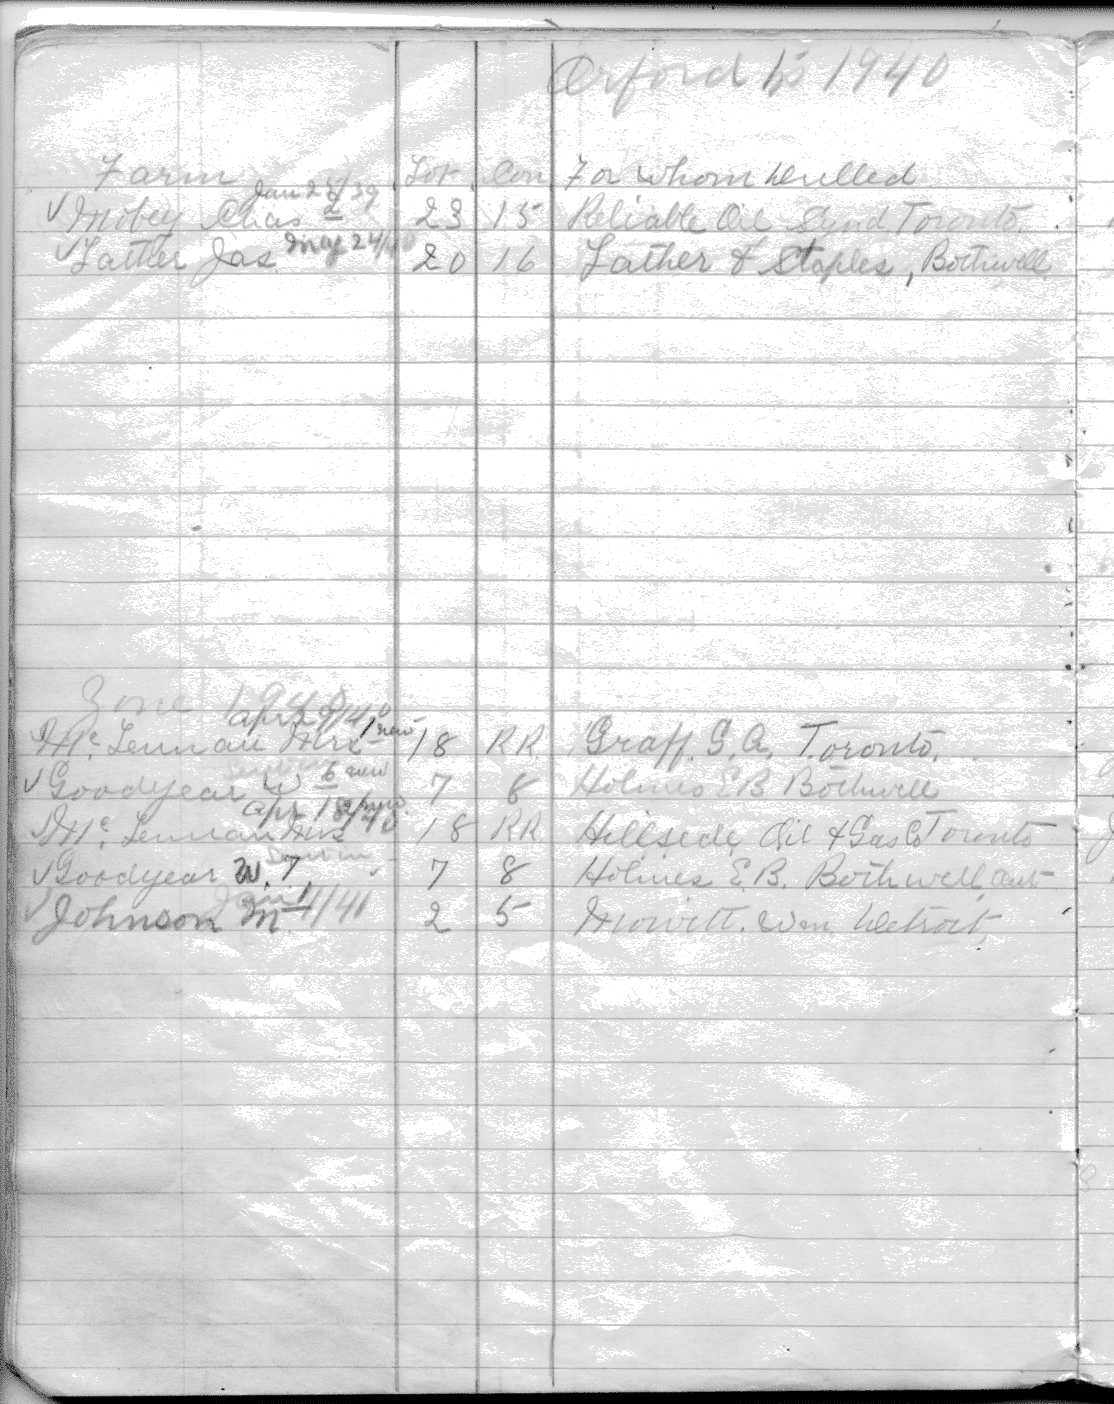 Orford tp 1940
Farm Lot Con For whom Drilled
Jan 25/39
√ Mobey Chas 2 23 15 Reliable Oil Synd Toronto.
May 24/40
√ Lather Jas. 20 16 Lather & Staples, Bothwell
Zone 1940
Apr 29/40
Mc Lennan Mrs 1 new 18 RR Graff. G. A. Toronto.
√ Goodyear W 6 new 7 8 Holmes E B Bothwell
Apr 18/40 new
Mc Lennan Mrs 2 18 RR Hillside Oil & Gas Co Toronto
√ Goodyear W. 7, 7 8 Holmes E. B. Bothwell Ont
Jan 1/41
√ Johnson M 1 2 5 Mowitt. Wm Detroit,